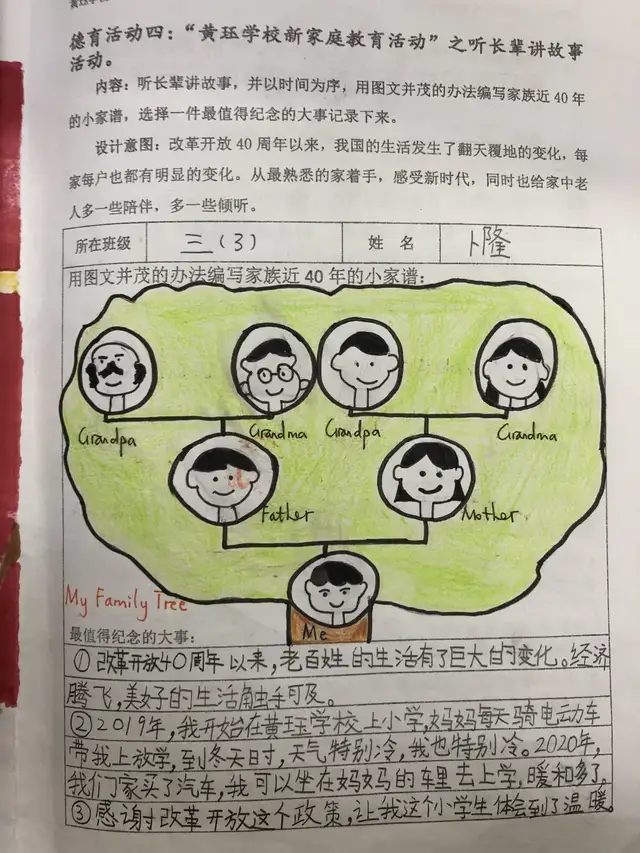 德育活动四：“黄珏学校新家庭教育活动”之听长辈讲故事
活动。
内容：听长辈讲故事，并以时间为序，用图文并茂的办法编写家族近40年
的小家谱，选择一件最值得纪念的大事记录下来。
设计意图：改革开放40周年以来，我国的生活发生了翻天覆地的变化，每
家每户也都有明显的变化。从最熟悉的家着手，感受新时代，同时也给家中老
人多一些陪伴，多一些倾听。
所在班级 三（3） 姓 名 卜隆
用图文并茂的办法编写家族近40年的小家谱：
Grandpa Grandma Grandpa Grandma
Father Mother
My Family Tree
Me
最值得纪念的大事：
①改革开放40周年以来，老百姓的生活有了巨大的变化。经济
腾飞，美好的生活触手可及。
②2019年，我开始在黄珏学校上小学，妈妈每天骑电动车
带我上放学，到冬天时，天气特别冷，我也特别冷。2020年，
我们家买了汽车，我可以坐在妈妈的车里去上学，暖和多了。
③感谢改革开放这个政策，让我这个小学生体会到了温暖。